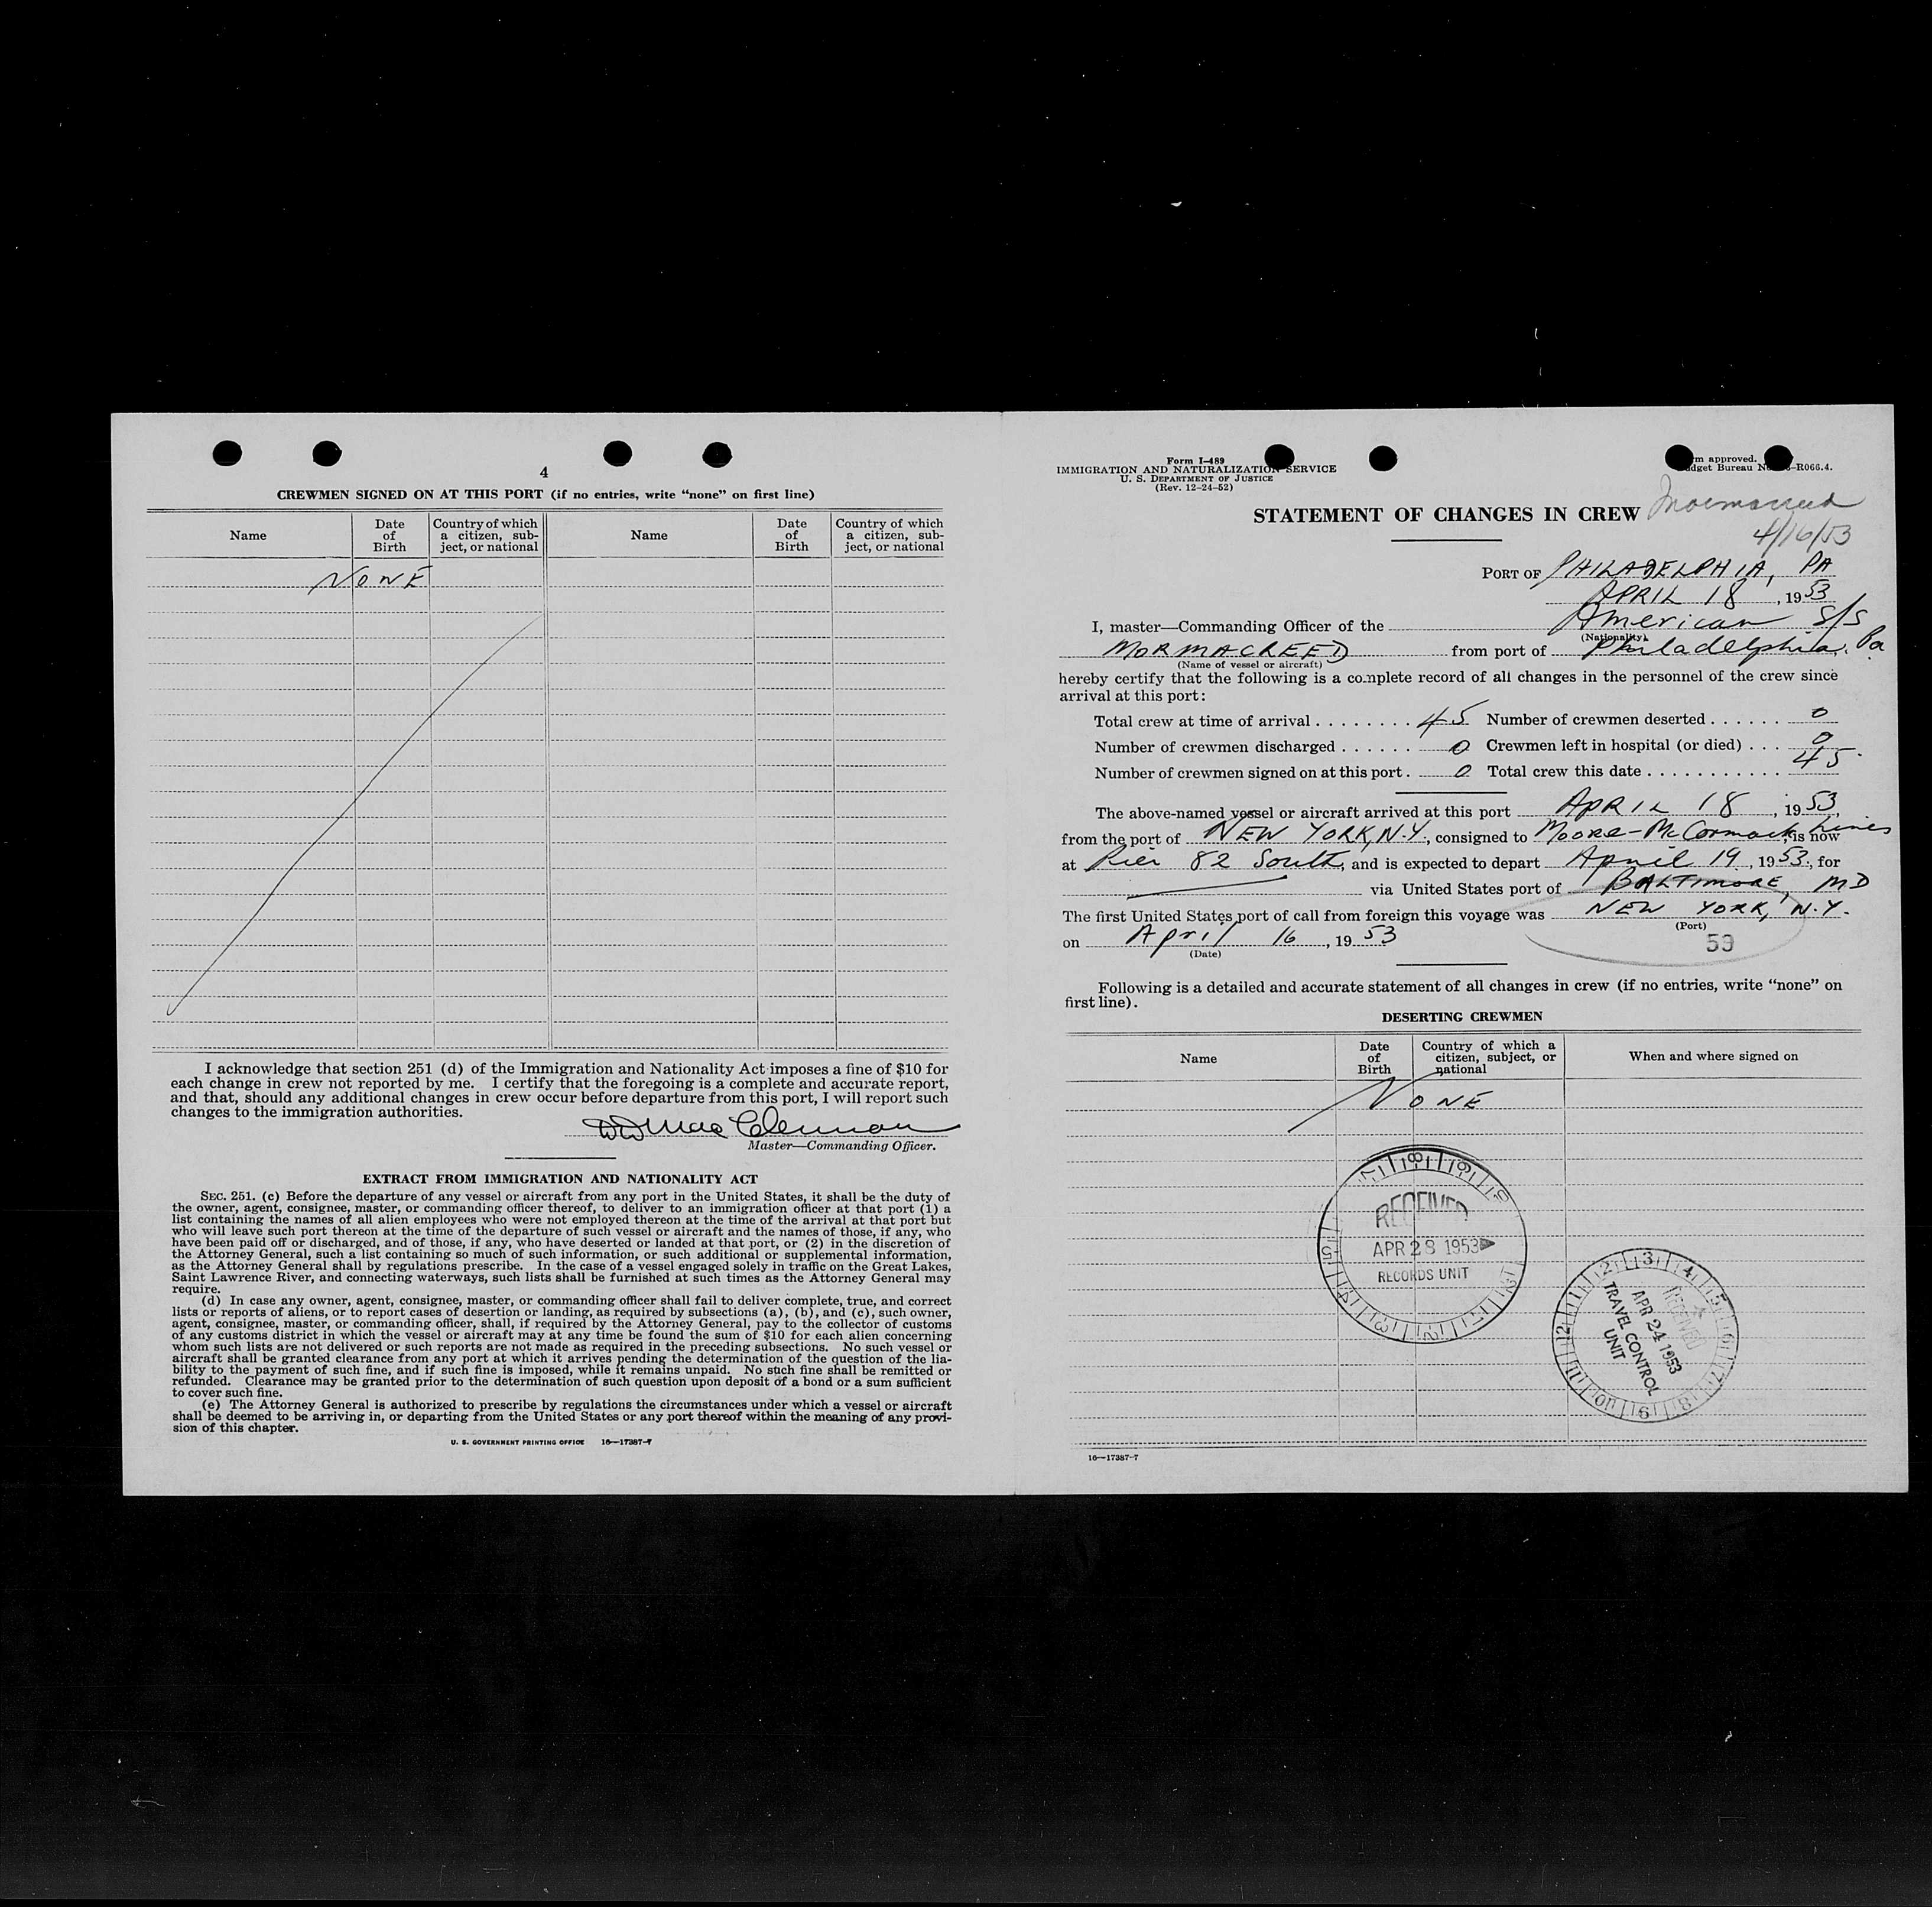 4
CREWMEN SIGNED ON AT THIS PORT (if no entries, write “none” on first line)
Name | Date of Birth | Country of which a citizen, subject, or national | Name | Date of Birth | Country of which a citizen, subject, or national
NONE
I acknowledge that section 251 (d) of the Immigration and Nationality Act imposes a fine of $10 for
each change in crew not reported by me. I certify that the foregoing is a complete and accurate report,
and that, should any additional changes in crew occur before departure from this port, I will report such
changes to the immigration authorities.
Master—Commanding Officer.
EXTRACT FROM IMMIGRATION AND NATIONALITY ACT
SEC. 251. (c) Before the departure of any vessel or aircraft from any port in the United States, it shall be the duty of
the owner, agent, consignee, master, or commanding officer thereof, to deliver to an immigration officer at that port (1) a
list containing the names of all alien employees who were not employed thereon at the time of the arrival at that port but
who will leave such port thereon at the time of the departure of such vessel or aircraft and the names of those, if any, who
have been paid off or discharged, and of those, if any, who have deserted or landed at that port, or (2) in the discretion of
the Attorney General, such a list containing so much of such information, or such additional or supplemental information,
as the Attorney General shall by regulations prescribe. In the case of a vessel engaged solely in traffic on the Great Lakes,
Saint Lawrence River, and connecting waterways, such lists shall be furnished at such times as the Attorney General may
require.
(d) In case any owner, agent, consignee, master, or commanding officer shall fail to deliver complete, true, and correct
lists or reports of aliens, or to report cases of desertion or landing, as required by subsections (a), (b), and (c), such owner,
agent, consignee, master, or commanding officer, shall, if required by the Attorney General, pay to the collector of customs
of any customs district in which the vessel or aircraft may at any time be found the sum of $10 for each alien concerning
whom such lists are not delivered or such reports are not made as required in the preceding subsections. No such vessel or
aircraft shall be granted clearance from any port at which it arrives pending the determination of the question of the lia-
bility to the payment of such fine, and if such fine is imposed, while it remains unpaid. No such fine shall be remitted or
refunded. Clearance may be granted prior to the determination of such question upon deposit of a bond or a sum sufficient
to cover such fine.
(e) The Attorney General is authorized to prescribe by regulations the circumstances under which a vessel or aircraft
shall be deemed to be arriving in, or departing from the United States or any port thereof within the meaning of any provi-
sion of this chapter.
U. S. GOVERNMENT PRINTING OFFICE 16—17387-7
Form I-489
IMMIGRATION AND NATURALIZATION SERVICE
U. S. DEPARTMENT OF JUSTICE
(Rev. 12-24-52)
m approved.
dget Bureau N -R066.4.
STATEMENT OF CHANGES IN CREW
4/16/53
PORT OF PHILADELPHIA, PA
APRIL 18, 1953
I, master—Commanding Officer of the American S/S
(Nationality)
MORMACREED from port of Philadelphia, Pa
(Name of vessel or aircraft)
hereby certify that the following is a complete record of all changes in the personnel of the crew since
arrival at this port:
Total crew at time of arrival . . . . . . . . 45 Number of crewmen deserted . . . . . . 0
Number of crewmen discharged . . . . . . 0 Crewmen left in hospital (or died) . . . 0
Number of crewmen signed on at this port . 0 Total crew this date . . . . . . . . . . . 45
The above-named vessel or aircraft arrived at this port APRIL 18, 1953,
from the port of NEW YORK, N.Y., consigned to Moore-McCormack Lines, is now
at Pier 82 South, and is expected to depart April 19, 1953, for
via United States port of BALTIMORE, MD
The first United States port of call from foreign this voyage was NEW YORK, N.Y.
(Port)
on April 16, 1953
(Date)
59
Following is a detailed and accurate statement of all changes in crew (if no entries, write “none” on
first line).
DESERTING CREWMEN
Name | Date of Birth | Country of which a citizen, subject, or national | When and where signed on
NONE
RECEIVED
APR 28 1953
RECORDS UNIT
RECEIVED
APR 24 1953
TRAVEL CONTROL
UNIT
16—17387-7